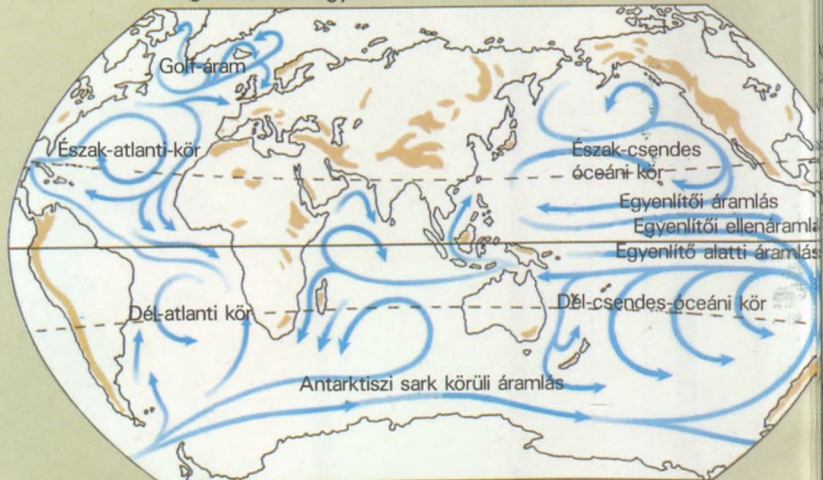 Golf-áram
Észak-atlanti-kör
Észak-csendes
óceáni kör
Egyenlítői áramlás
Egyenlítői ellenáramlá
Egyenlítő alatti áramlás
Dél-atlanti kör
Dél-csendes-óceáni kör
Antarktiszi sark körüli áramlás